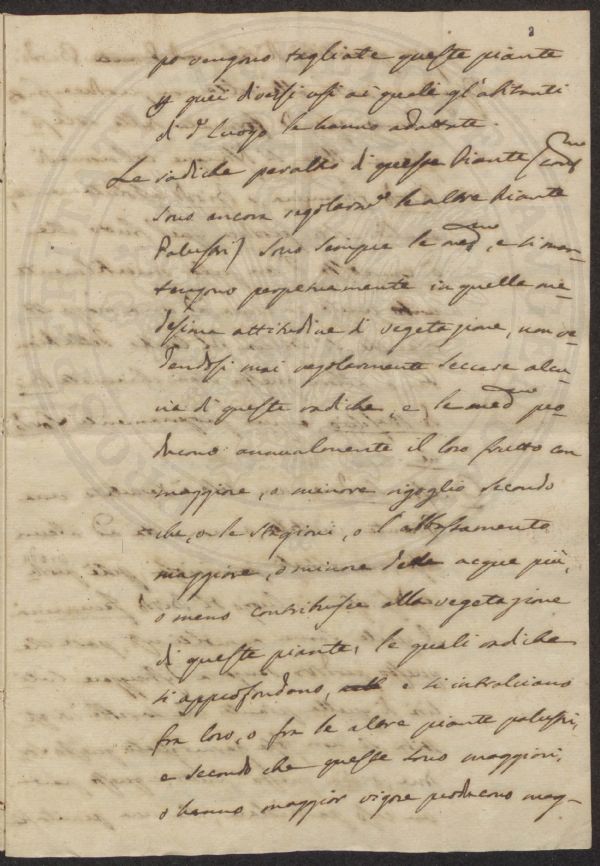 3
po vengono tagliate queste piante
p quei diversi usi ai quali gl'abitanti
di d.o luogo le hanno adattate.
Le radiche peraltro di queste Piante (come
sono ancora regolarm.e le altre Piante
Palustri) sono sempre le med.me, e si man-
tengono perpetuamente in quella me-
desima attitudine di vegetazione, non ve-
dendosi mai regolarmente seccare alcu-
na di queste radiche, e le med.me pro-
ducono annualmente il loro frutto con
maggiore, o minore rigoglio secondo
che, o le stagioni, o l'abbassamento
maggiore, o minore delle acque più,
o meno contribuisce alla vegetazione
di queste piante, le quali radiche
si approfondono, e si intralciano
fra loro, o fra le altre piante palustri,
e secondo che queste sono maggiori,
o hanno maggior vigore producono mag-